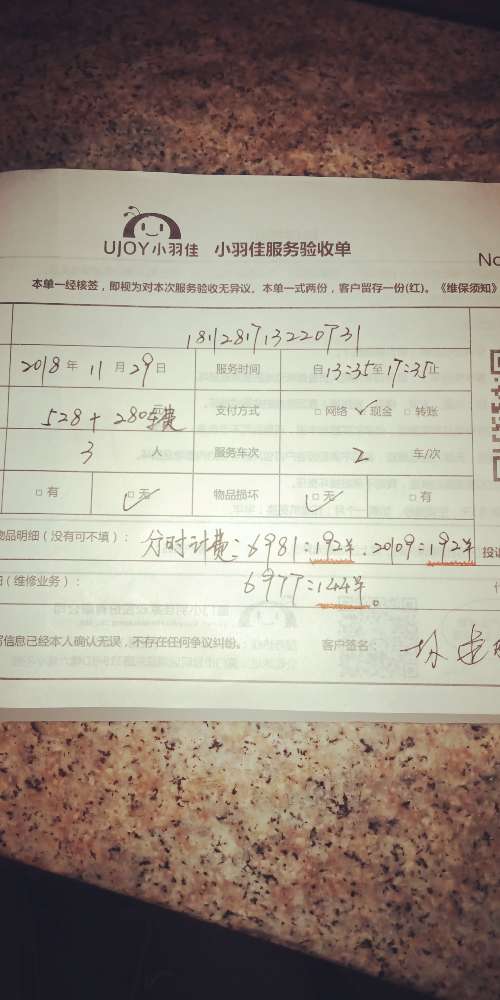 UJOY小羽佳 小羽佳服务验收单
No
本单一经核签，即视为对本次服务验收无异议。本单一式两份，客户留存一份(红)。《维保须知》
181128171322 0731
2018 年 11 月 29 日 服务时间 自 13:35 至 17:35 止
528 + 280车费 支付方式 □ 网络 ✓ 现金 □ 转账
3 人 服务车次 2 车/次
□ 有 □ 无 物品损坏 □ 无 □ 有
物品明细（没有可不填）： 分时计费：6981:192半．20109:192半 投诉
（维修业务）： 6977:144半。
写信息已经本人确认无误，不存在任何争议纠纷。 客户签名：